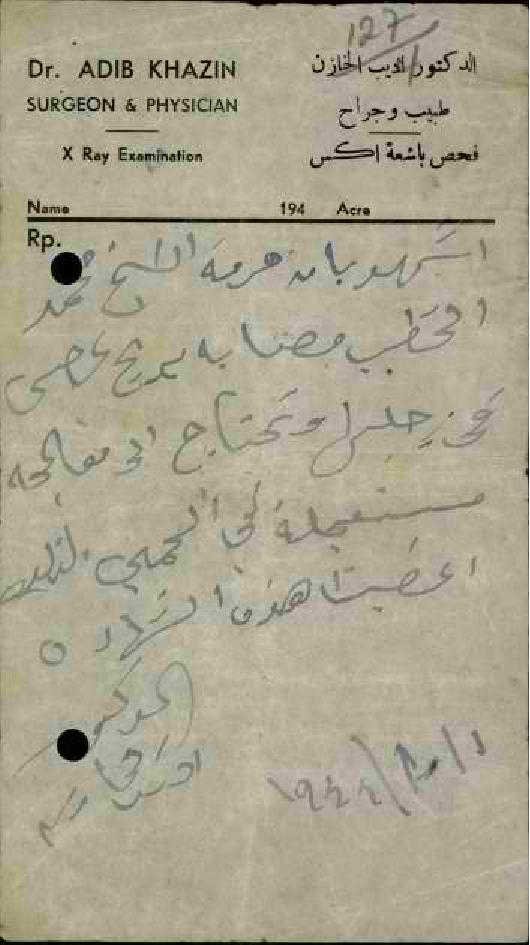 127
Dr. ADIB KHAZIN
SURGEON & PHYSICIAN
X Ray Examination
الدكتور اديب الخازن
طبيب وجراح
فحص باشعة اكس
Name 194 Acre
Rp.
اشهد بان حرمة الشيخ محمد
الخطيب مصابه بريح عصبي
في رجليها وتحتاج الى معالجه
مستعجلة في الحمى لذلك
اعطيت هذه الشهاده
الدكتور